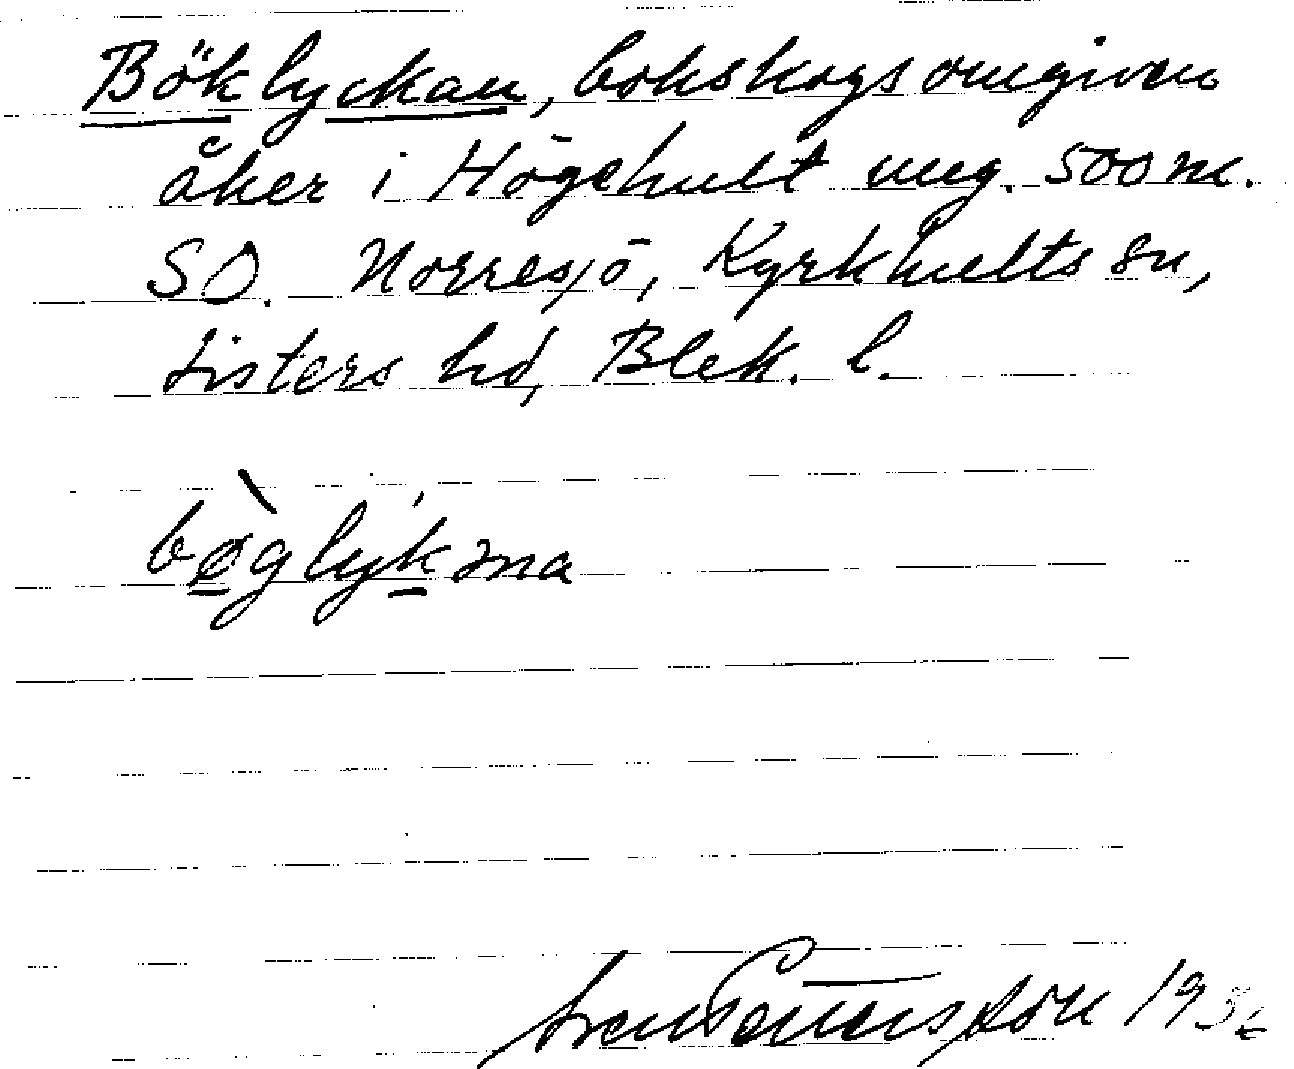 Böklyckan, bokskogsomgiven
åker i Högehult ung. 500 m.
SO. Norresjö, Kyrkhults sn,
Listers hd, Blek. l.
bø̀glyḱəna
Sven